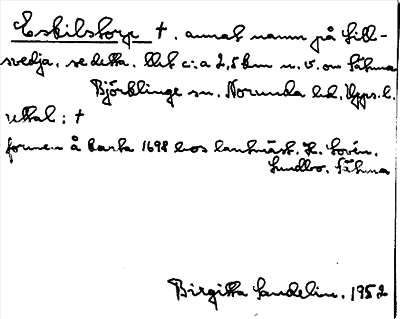 Eskilstorp †. annat namn på Lill-
svedja. se detta. Utt c:a 2,5 km n. v. om Låhma
Björklinge sn. Norunda hd. Upps. l.
uttal: †
formen å karta 1698 hos lantmät. K. Lovén.
Lundbo. Låhma
Birgitta Sandelin. 1952